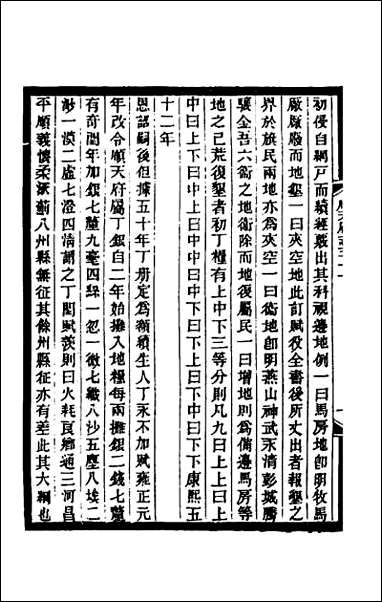 初優自綱戸而續經報出其科視邊地例一曰馬房地卽明牧馬
廠廠廢而地墾一曰夾空地此訂賦役全書後所丈出者報墾之
界於旗民兩地亦爲夾空一曰衞地卽明燕山神武永淸彭城騰
驤金吾六衞之地衞除而地後屬民一曰增地則爲備邊馬房等
地之已荒復墾者初丁糧有上中下三等分則凡九曰上上曰上
中曰上下曰中上曰中中曰中下曰下上曰下中曰下下康熙五
十二年
恩詔嗣後但據五十年丁册定爲額續生人丁永不加賦雍正元
年改令順天府屬丁銀自二年始攤入地糧每兩攤銀二錢七釐
有奇閏年加銀七釐九毫四絲一忽一微七纖八沙五塵八埃二
渺一漠二虛七澄四淸謂之丁閏賦羨則曰火耗良鄕通三河昌
平順義懷柔涿薊八州縣無征其餘州縣征亦有差此其大綱也